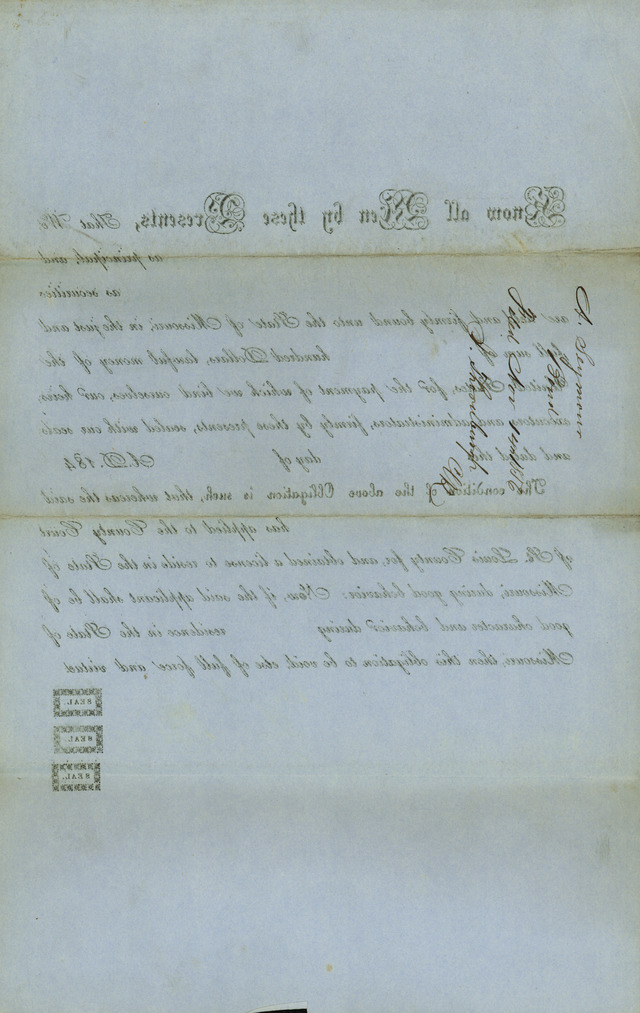 Know all Men by these Presents, That We
as principal, and
as securities
are held and firmly bound unto the State of Missouri, in the just and
full sum of hundred Dollars, lawful money of the
United States, for the payment of which we bind ourselves, our heirs,
executors and administrators, firmly by these presents, sealed with our seals
and dated this day of A.D. 184
The condition of the above Obligation is such, that whereas the said
has applied to the County Court
of St. Louis County for, and obtained a license to reside in the State of
Missouri, during good behavior: Now, if the said applicant shall be of
good character and behavior during residence in the State of
Missouri, then this obligation to be void, else of full force and virtue
SEAL.
SEAL.
SEAL.
A. Seymour
Bond
Filed Nov